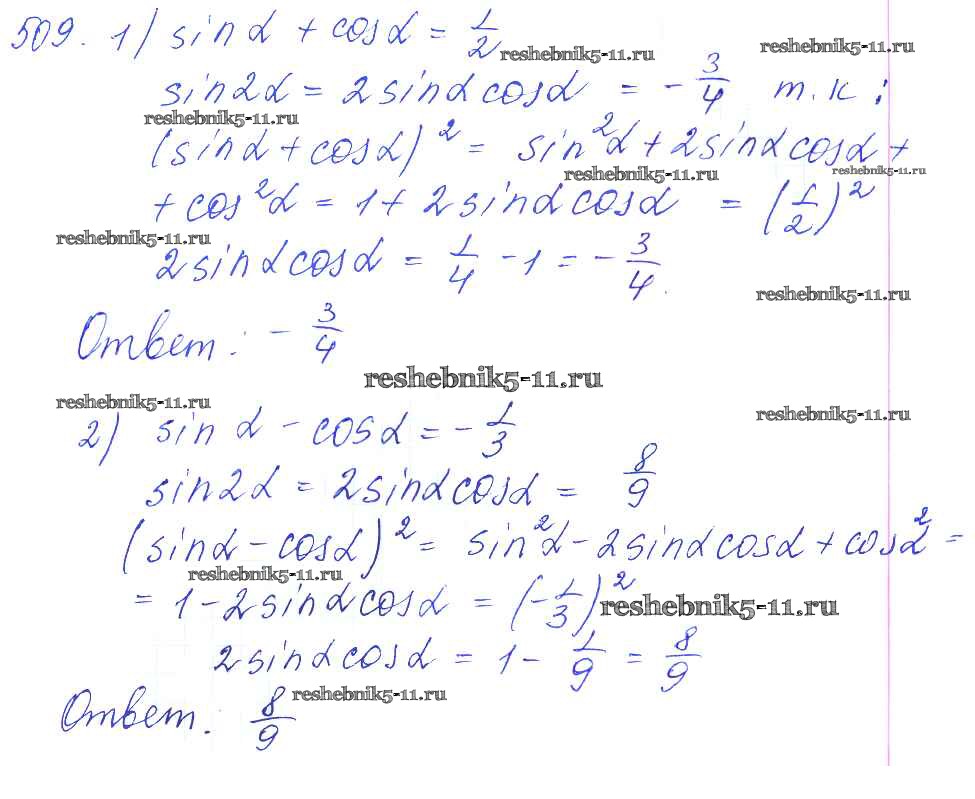 509. 1) sin α + cos α = 1/2
reshebnik5-11.ru reshebnik5-11.ru
sin2α = 2 sin α cos α = - 3/4 т.к:
reshebnik5-11.ru
(sin α + cos α)² = sin²α + 2 sin α cos α +
reshebnik5-11.ru reshebnik5-11.ru
+ cos²α = 1 + 2 sin α cos α = (1/2)²
reshebnik5-11.ru
2 sin α cos α = 1/4 - 1 = - 3/4.
reshebnik5-11.ru
Ответ: - 3/4
reshebnik5-11.ru
reshebnik5-11.ru reshebnik5-11.ru
2) sin α - cos α = - 1/3
sin2α = 2 sin α cos α = 8/9
(sin α - cos α)² = sin²α - 2 sin α cos α + cos²α =
reshebnik5-11.ru
= 1 - 2 sin α cos α = (- 1/3)² reshebnik5-11.ru
2 sin α cos α = 1 - 1/9 = 8/9
reshebnik5-11.ru
Ответ. 8/9